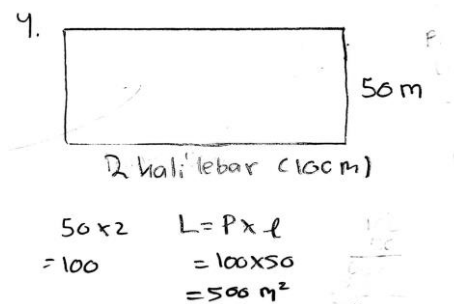 4.
50 m
2 kali lebar (100 m)
50 x 2 L = P x l
= 100 = 100 x 50
= 500 m²